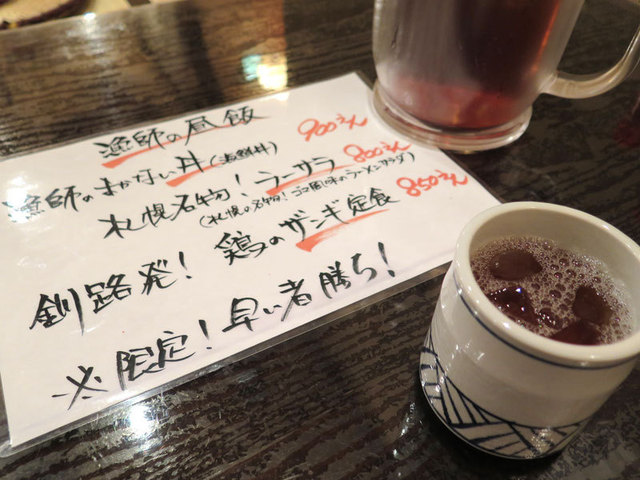 漁師の昼飯
漁師のまかない丼(海鮮丼) 900えん
札幌名物!ラーサラ 800えん
(札幌の名物!ゴマ風味のラーメンサラダ)
釧路発!鶏のザンギ定食 850えん
※限定!早い者勝ち!